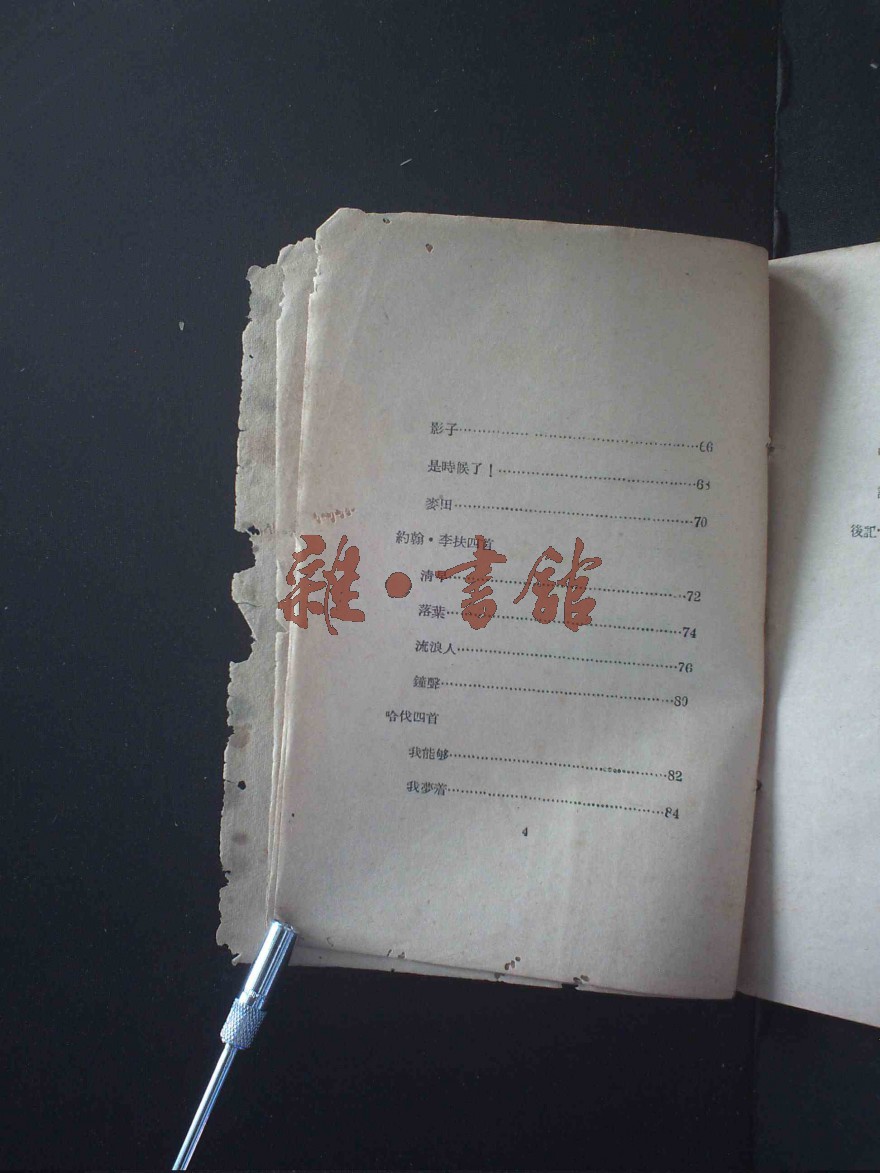 影子……………………………………66
是時候了！……………………………68
麥田……………………………………70
約翰·李扶四首
清早……………………………………72
落葉……………………………………74
流浪人…………………………………76
鐘聲……………………………………80
哈伐四首
我能够…………………………………82
我夢着…………………………………84
4
後記
雜·書館